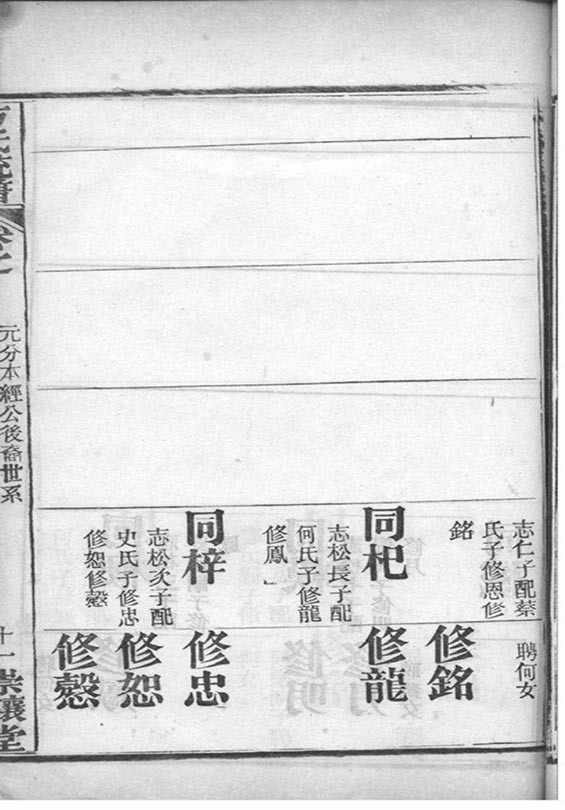 志仁子配蔡
氏子修恩修
銘
同杞
志松長子配
何氏子修龍
修鳳
同梓
志松次子配
史氏子修忠
修恕修愨
聘何女
修銘
修龍
修忠
修恕
修愨
元分本經公後裔世系
十一
崇讓堂